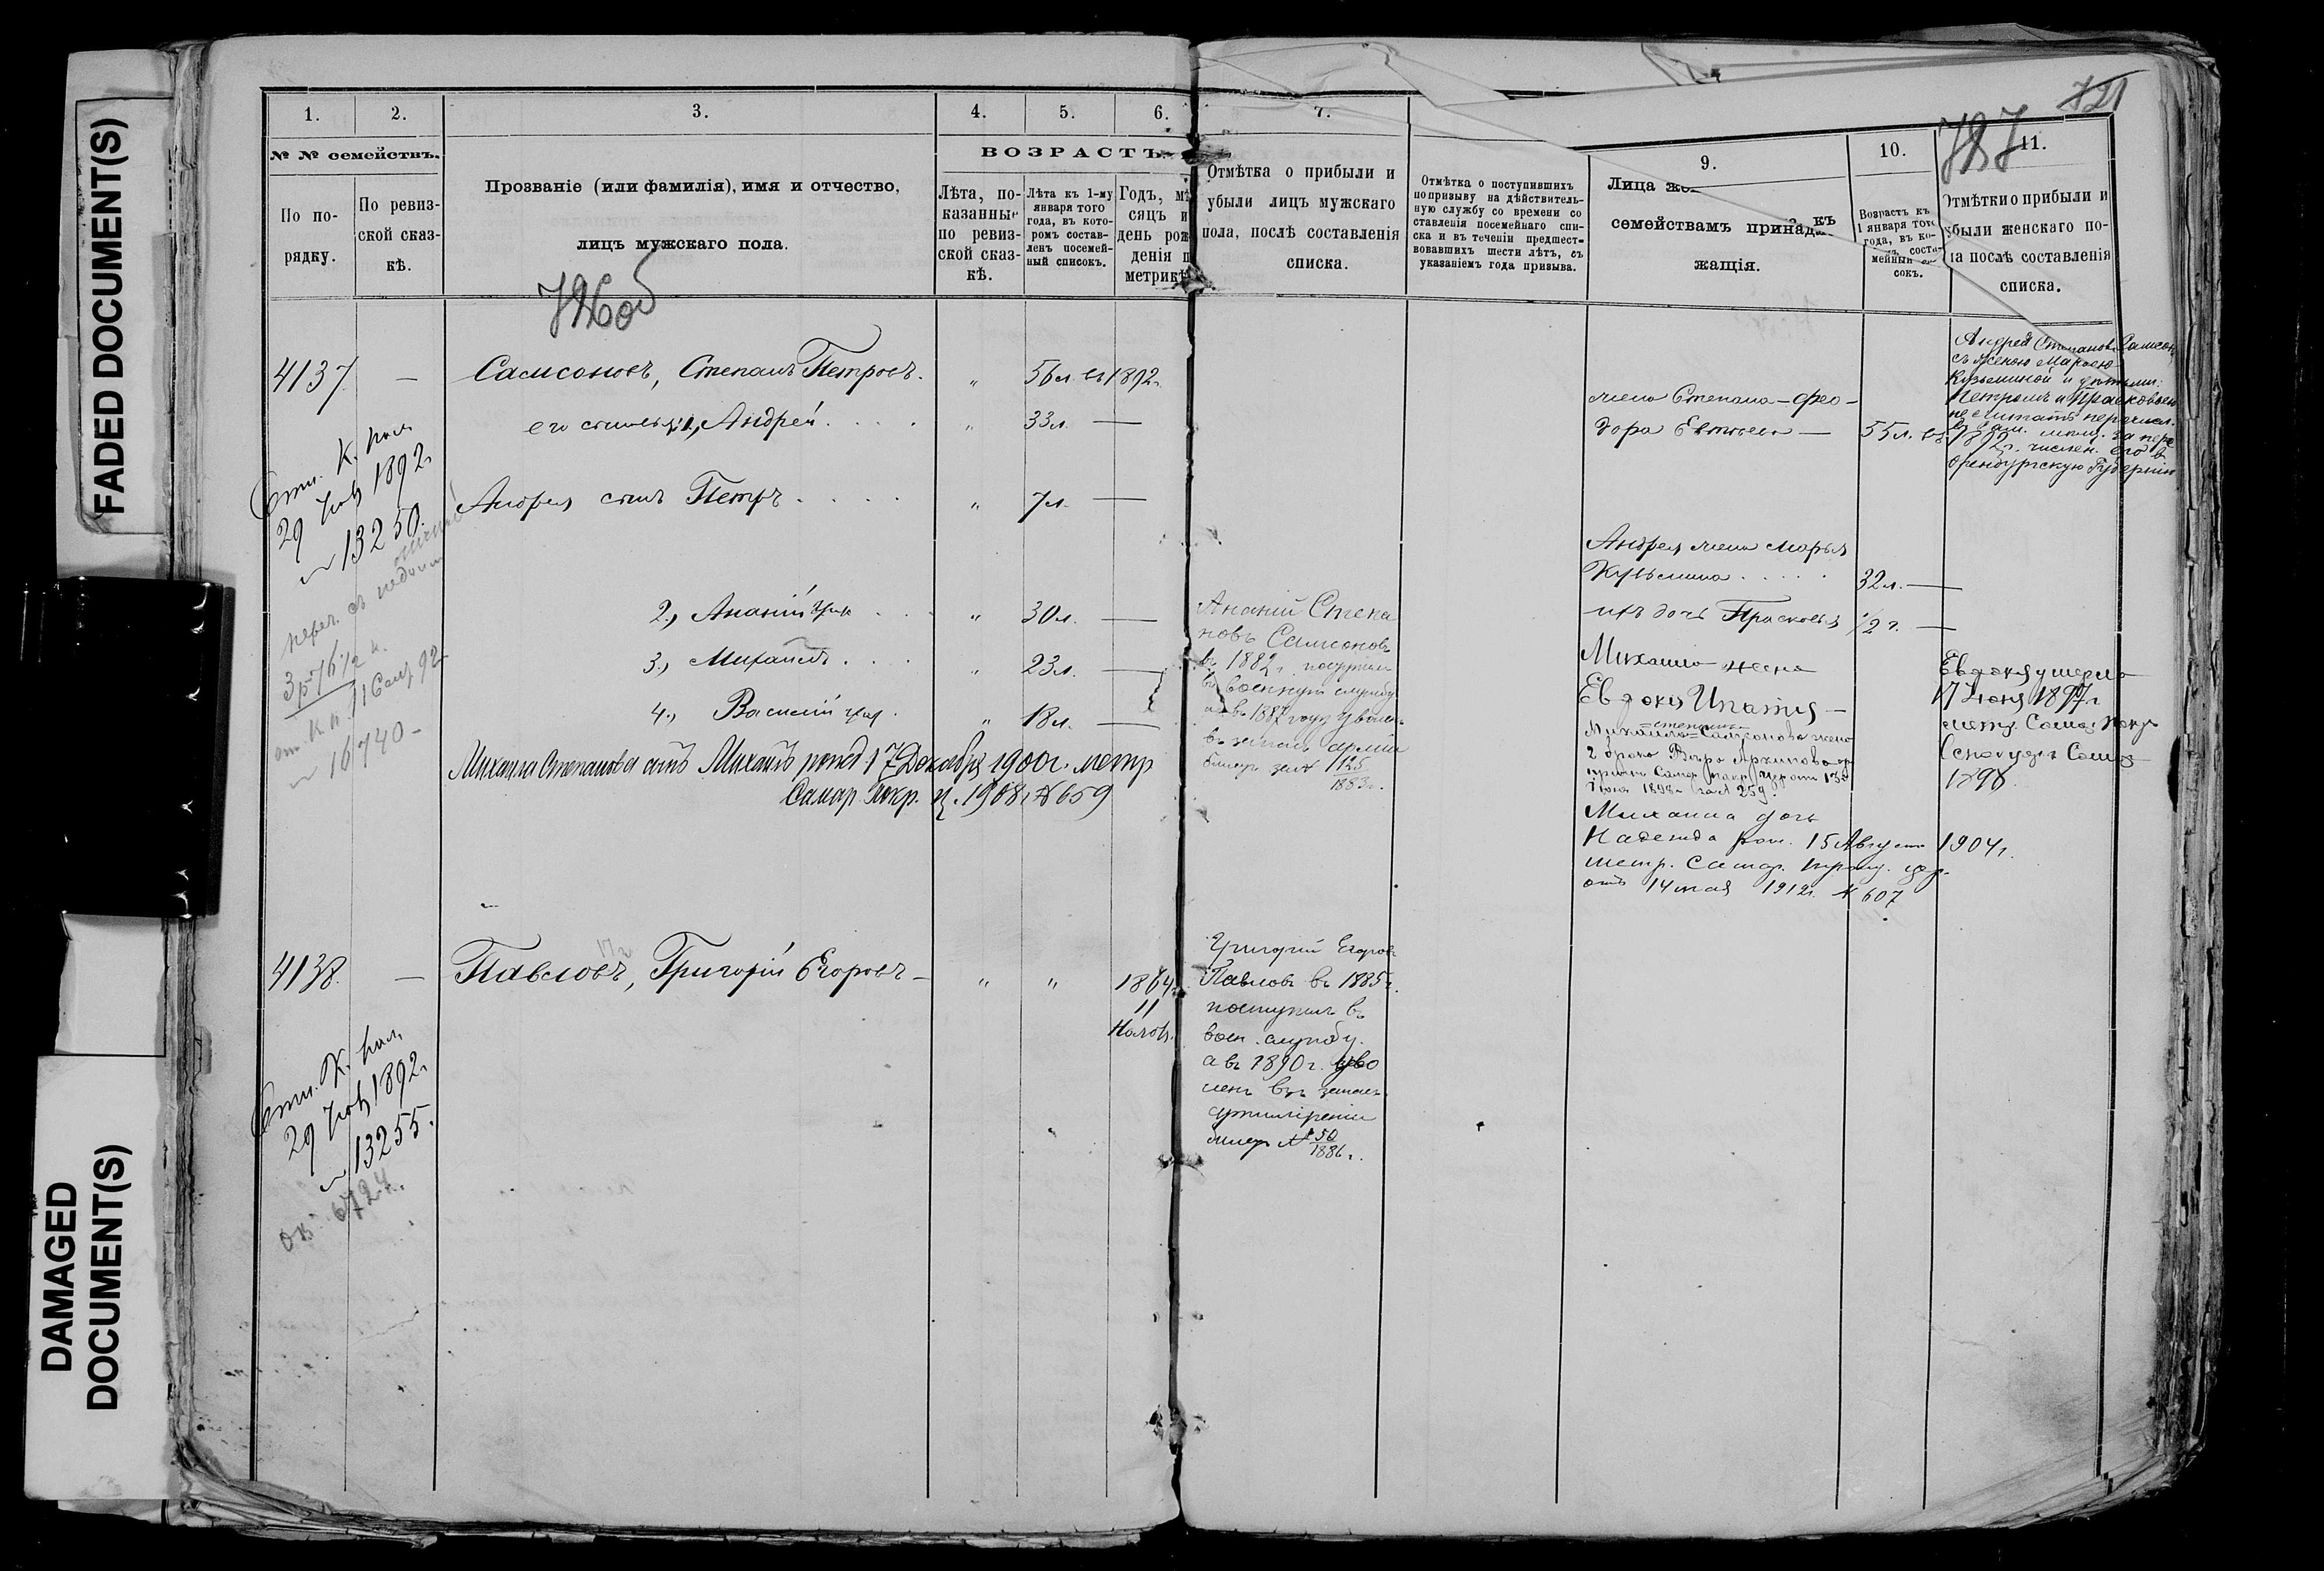 FADED DOCUMENT(S)
DAMAGED
DOCUMENT(S)
721
787
1. 2. 3. 4. 5. 6. 7. 9. 10. 11.
№ № семействъ.
По по-
рядку.
По ревиз-
ской сказ-
кѣ.
Прозваніе (или фамилія), имя и отчество,
лицъ мужскаго пола.
ВОЗРАСТЪ.
Лѣта, по-
казанные
по ревиз-
ской сказ-
кѣ.
Лѣта къ 1-му
января того
года, въ кото-
ромъ состав-
ленъ посемей-
ный списокъ.
Годъ, мѣ
сяцъ и
день рож
денія п
метрикѣ
Отмѣтка о прибыли и
убыли лицъ мужскаго
пола, послѣ составленія
списка.
Отмѣтка о поступившихъ
по призыву на дѣйствитель-
ную службу со времени со
ставленія посемейнаго спи-
ска и въ теченіи предшест-
вовавшихъ шести лѣтъ, съ
указаніемъ года призыва.
Лица же
семействамъ принад къ
жащія.
Возрастъ къ
1 января того
года, въ ко-
соста-
мейный
сокъ.
Отмѣтки о прибыли и
убыли женскаго по-
ла послѣ составленія
списка.
726об
4137. — Самсоновъ, Степанъ Петровъ. „ 56 л. въ 1892 г.
его сыновья 1, Андрей . . . . „ 33 л. —
Андрея сынъ Петръ . . . . „ 7 л. —
2., Ананій . . . „ 30 л. —
3., Михаилъ . . . . „ 23 л. —
4., Василій . „ 18 л. —
Михаила Степанова сынъ Михаилъ 17 Декабря 1900 г. метр
Самар. Покр. ц. 1908 г. № 659
К. пал
29 1892 г.
№ 13250.
переч. съ
3 р 76 1/2 к.
К п 11 92
№ 16740 —
Ананій Степа
новъ Самсоновъ
въ 1882 г. поступил
въ военную службу
а въ 1887 году уволен
въ запасъ арміи
билетъ за № 1125
1883 г.
жена Степана — Фео-
дора — 55 л. въ 1892 г.
Андрея жена Марья
Кузьмина . . . . . 32 л. —
ихъ дочь Прасковья 1/2 г. —
Михаила жена
Евдокія Ипатія —
Степанъ
Михаила Самсонова жена
2 брака Вѣра Архипова
1898 г за № 259.
Михаила дочь
Надежда род. 15 Августа 1904 г.
метр. Самар. цер.
отъ 14 мая 1912 г. № 607
Андрей Степанов Самсон
съ женою Марьею
Кузьминой и дѣтьми:
Петромъ и Прасковьей
не считать перечисл.
за пере
числен. его въ
Оренбургскую Губернію
Евдокія умерла
17 Іюня 1897 г
1898
4138. — Павловъ, Григорій Егоровъ — „ „ 1864 г.
11
17 г
К. пал,
29 1892 г
№ 13255.
6724.
Григорій Егоров
Павловъ въ 1885 г.
поступилъ въ
воен. службу.
а въ 1890 г. уво
ленъ въ запасъ
артиллеріи
билетъ № 50
1886 г.